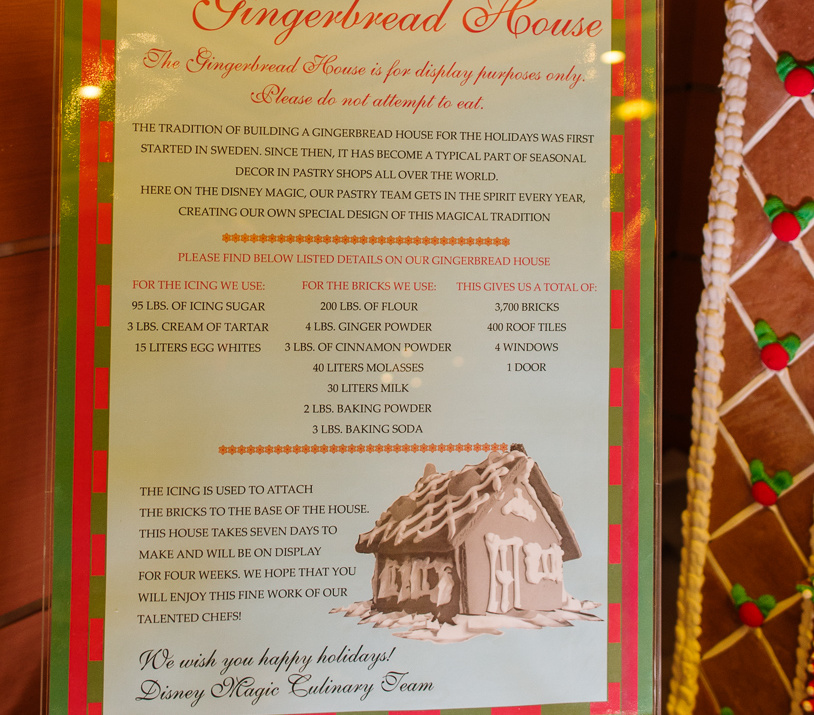 Gingerbread House
The Gingerbread House is for display purposes only.
Please do not attempt to eat.
THE TRADITION OF BUILDING A GINGERBREAD HOUSE FOR THE HOLIDAYS WAS FIRST
STARTED IN SWEDEN. SINCE THEN, IT HAS BECOME A TYPICAL PART OF SEASONAL
DECOR IN PASTRY SHOPS ALL OVER THE WORLD.
HERE ON THE DISNEY MAGIC, OUR PASTRY TEAM GETS IN THE SPIRIT EVERY YEAR,
CREATING OUR OWN SPECIAL DESIGN OF THIS MAGICAL TRADITION
PLEASE FIND BELOW LISTED DETAILS ON OUR GINGERBREAD HOUSE
FOR THE ICING WE USE:
95 LBS. OF ICING SUGAR
3 LBS. CREAM OF TARTAR
15 LITERS EGG WHITES
FOR THE BRICKS WE USE:
200 LBS. OF FLOUR
4 LBS. GINGER POWDER
3 LBS. OF CINNAMON POWDER
40 LITERS MOLASSES
30 LITERS MILK
2 LBS. BAKING POWDER
3 LBS. BAKING SODA
THIS GIVES US A TOTAL OF:
3,700 BRICKS
400 ROOF TILES
4 WINDOWS
1 DOOR
THE ICING IS USED TO ATTACH
THE BRICKS TO THE BASE OF THE HOUSE.
THIS HOUSE TAKES SEVEN DAYS TO
MAKE AND WILL BE ON DISPLAY
FOR FOUR WEEKS. WE HOPE THAT YOU
WILL ENJOY THIS FINE WORK OF OUR
TALENTED CHEFS!
We wish you happy holidays!
Disney Magic Culinary Team